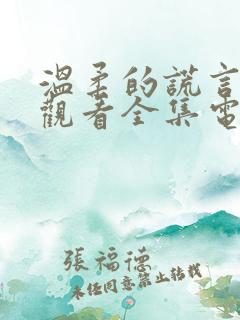 溫柔的謊言
觀看全集電
張福德
未經同意禁止轉載